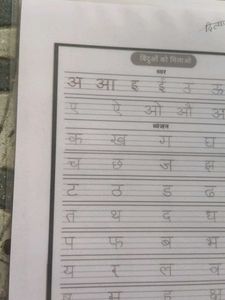 बिंदुओं को मिलाओ
स्वर
अ आ इ ई उ ऊ
ए ऐ ओ औ अ
व्यंजन
क ख ग घ
च छ ज झ
ट ठ ड ढ
त थ द ध
प फ ब भ
य र ल व